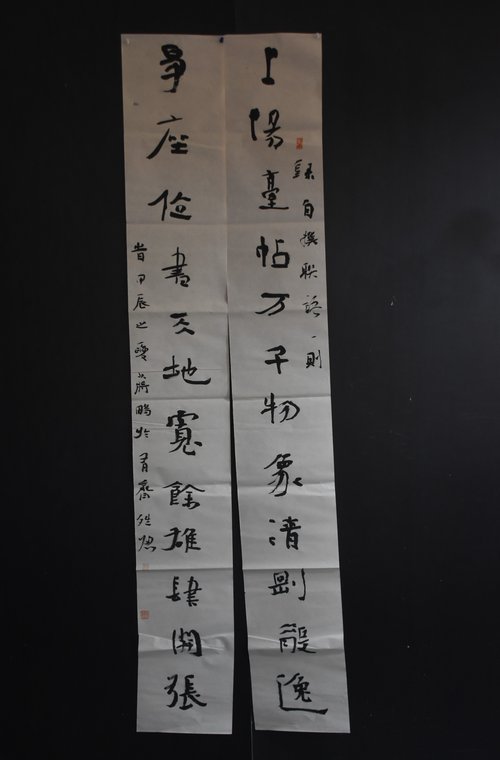 上陽臺帖万千物象清剛逸
錄自撰联語一則
爭座位書天地寬餘雄肆開張
旹甲辰之夏蔣鵬於齋